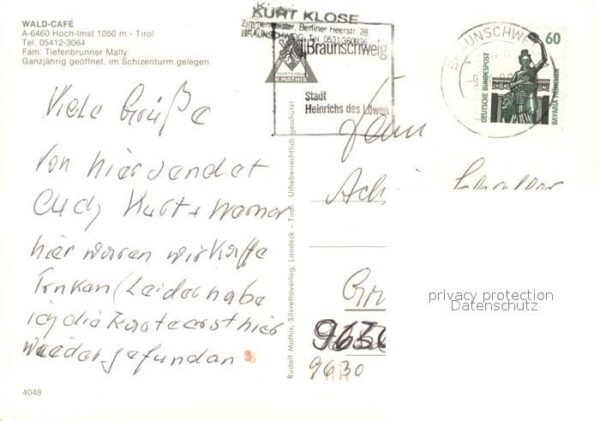 WALD-CAFÉ
A-6460 Hoch-Imst 1050 m - Tirol
Tel. 05412-3064
Fam. Tiefenbrunner Mally
Ganzjährig geöffnet, im Schizenturm gelegen.
KURT KLOSE
Zimmermeister, Berliner Heerstr. 28
BRAUNSCHWEIG, Tel. 0531/360936
Braunschweig
R. MATHIS
Stadt
Heinrichs des Löwen
BRAUNSCHWEIG
60
DEUTSCHE BUNDESPOST
BAVARIA MÜNCHEN
Viele Grüße
von hier sendet
Euch Kurt + Werner
hier waren wir Kaffe
Trinken (Leider habe
ich die Karte erst hier
wieder gefunden
Rudolf Mathis, Silvrettaverlag, Landeck - Tirol. Urheberrechtlich geschützt!
9630
9630
privacy protection
Datenschutz
4048